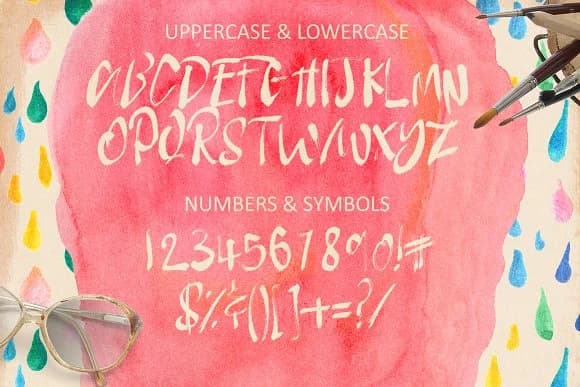 UPPERCASE & LOWERCASE
ABCDEFGHIJKLMN
OPQRSTUVWXYZ
NUMBERS & SYMBOLS
1234567890!#
$%&()[]+=?/